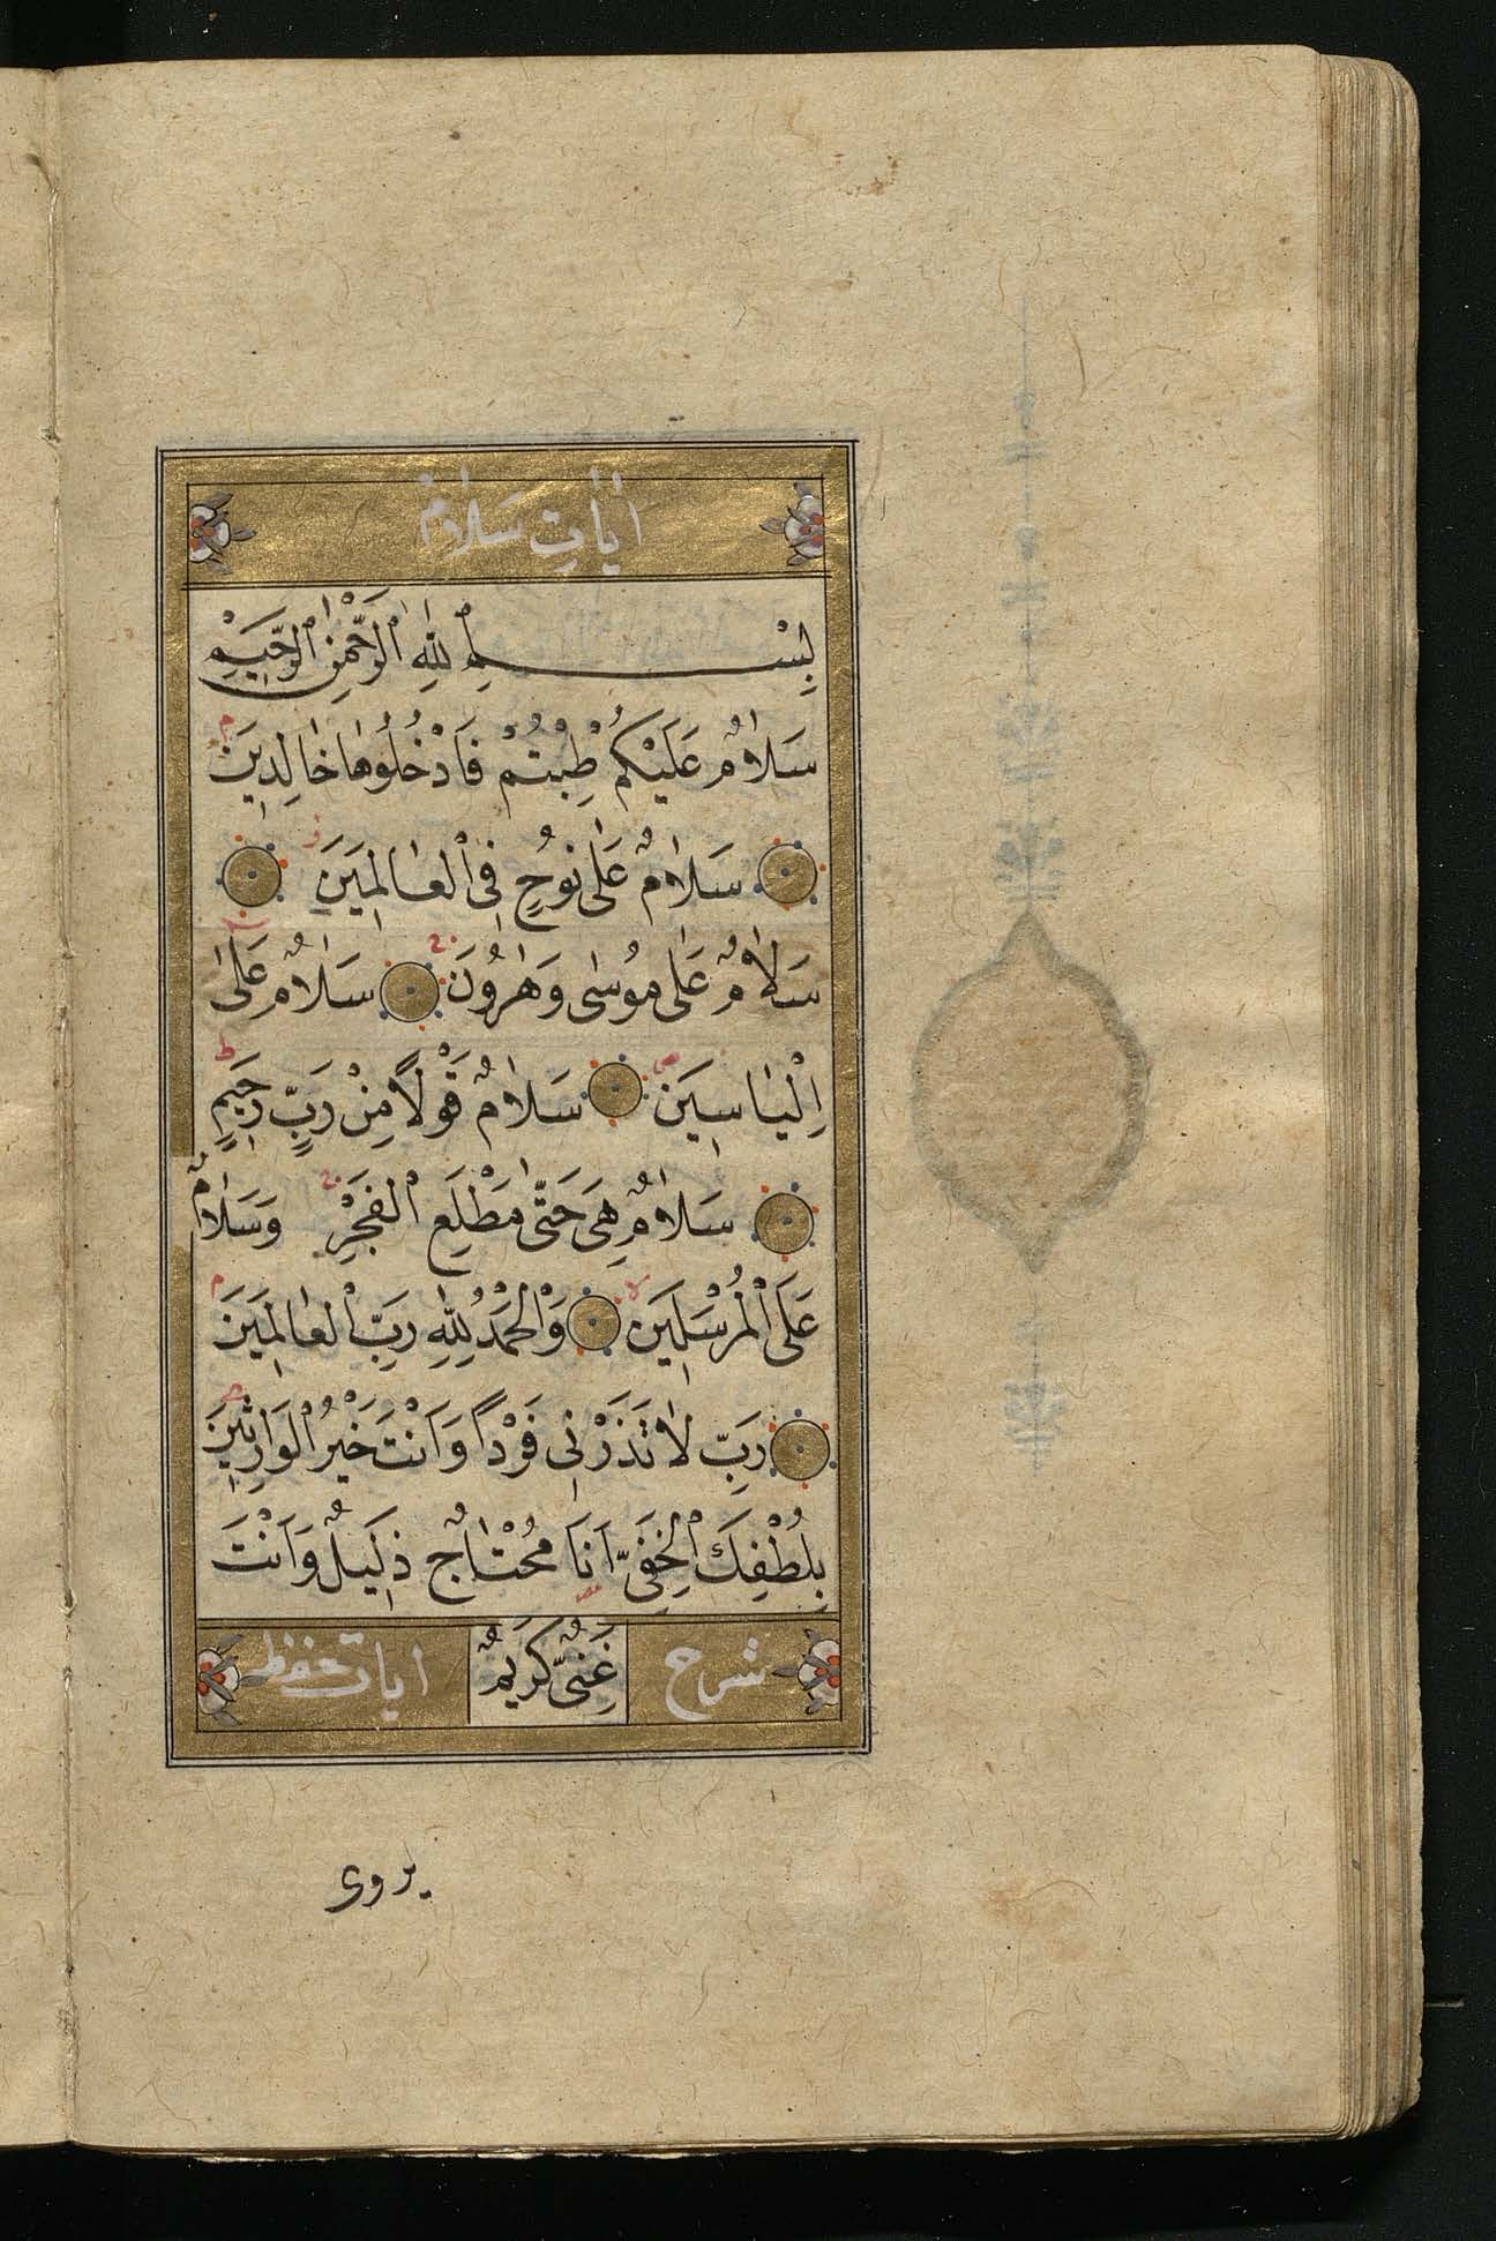 اٰيَاتِ سَلَامٌ
بِسْمِ اللهِ الرَّحْمٰنِ الرَّحِيمِ
سَلَامٌ عَلَيْكُمْ طِبْتُمْ فَادْخُلُوهَا خَالِدِينَ
سَلَامٌ عَلٰى نُوحٍ فِى الْعَالَمِينَ
سَلَامٌ عَلٰى مُوسٰى وَهٰرُونَ سَلَامٌ عَلٰى
اِلْيَاسِينَ سَلَامٌ قَوْلًا مِنْ رَبٍّ رَحِيمٍ
سَلَامٌ هِىَ حَتّٰى مَطْلَعِ الْفَجْرِ وَسَلَامٌ
عَلَى الْمُرْسَلِينَ وَالْحَمْدُ لِلّٰهِ رَبِّ الْعَالَمِينَ
رَبِّ لَا تَذَرْنِى فَرْدًا وَاَنْتَ خَيْرُ الْوَارِثِينَ
بِلُطْفِكَ الْخَفِىِّ اَنَا مُحْتَاجٌ ذَلِيلٌ وَاَنْتَ
شرح غَنِىٌّ كَرِيمٌ ايات حفظ
يروى